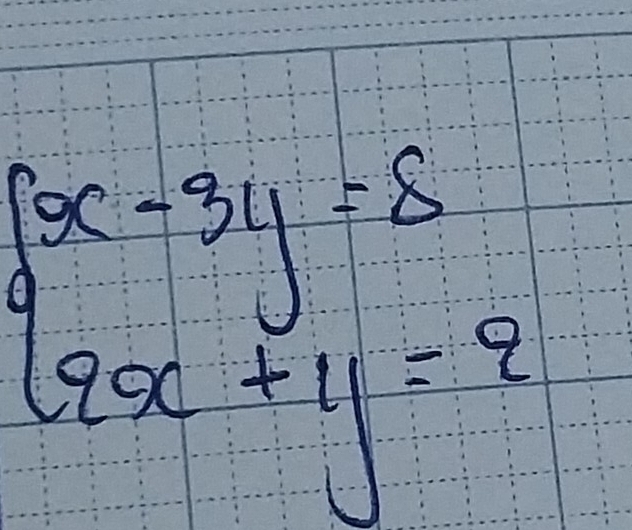 x - 3y = 8
2x + y = 2